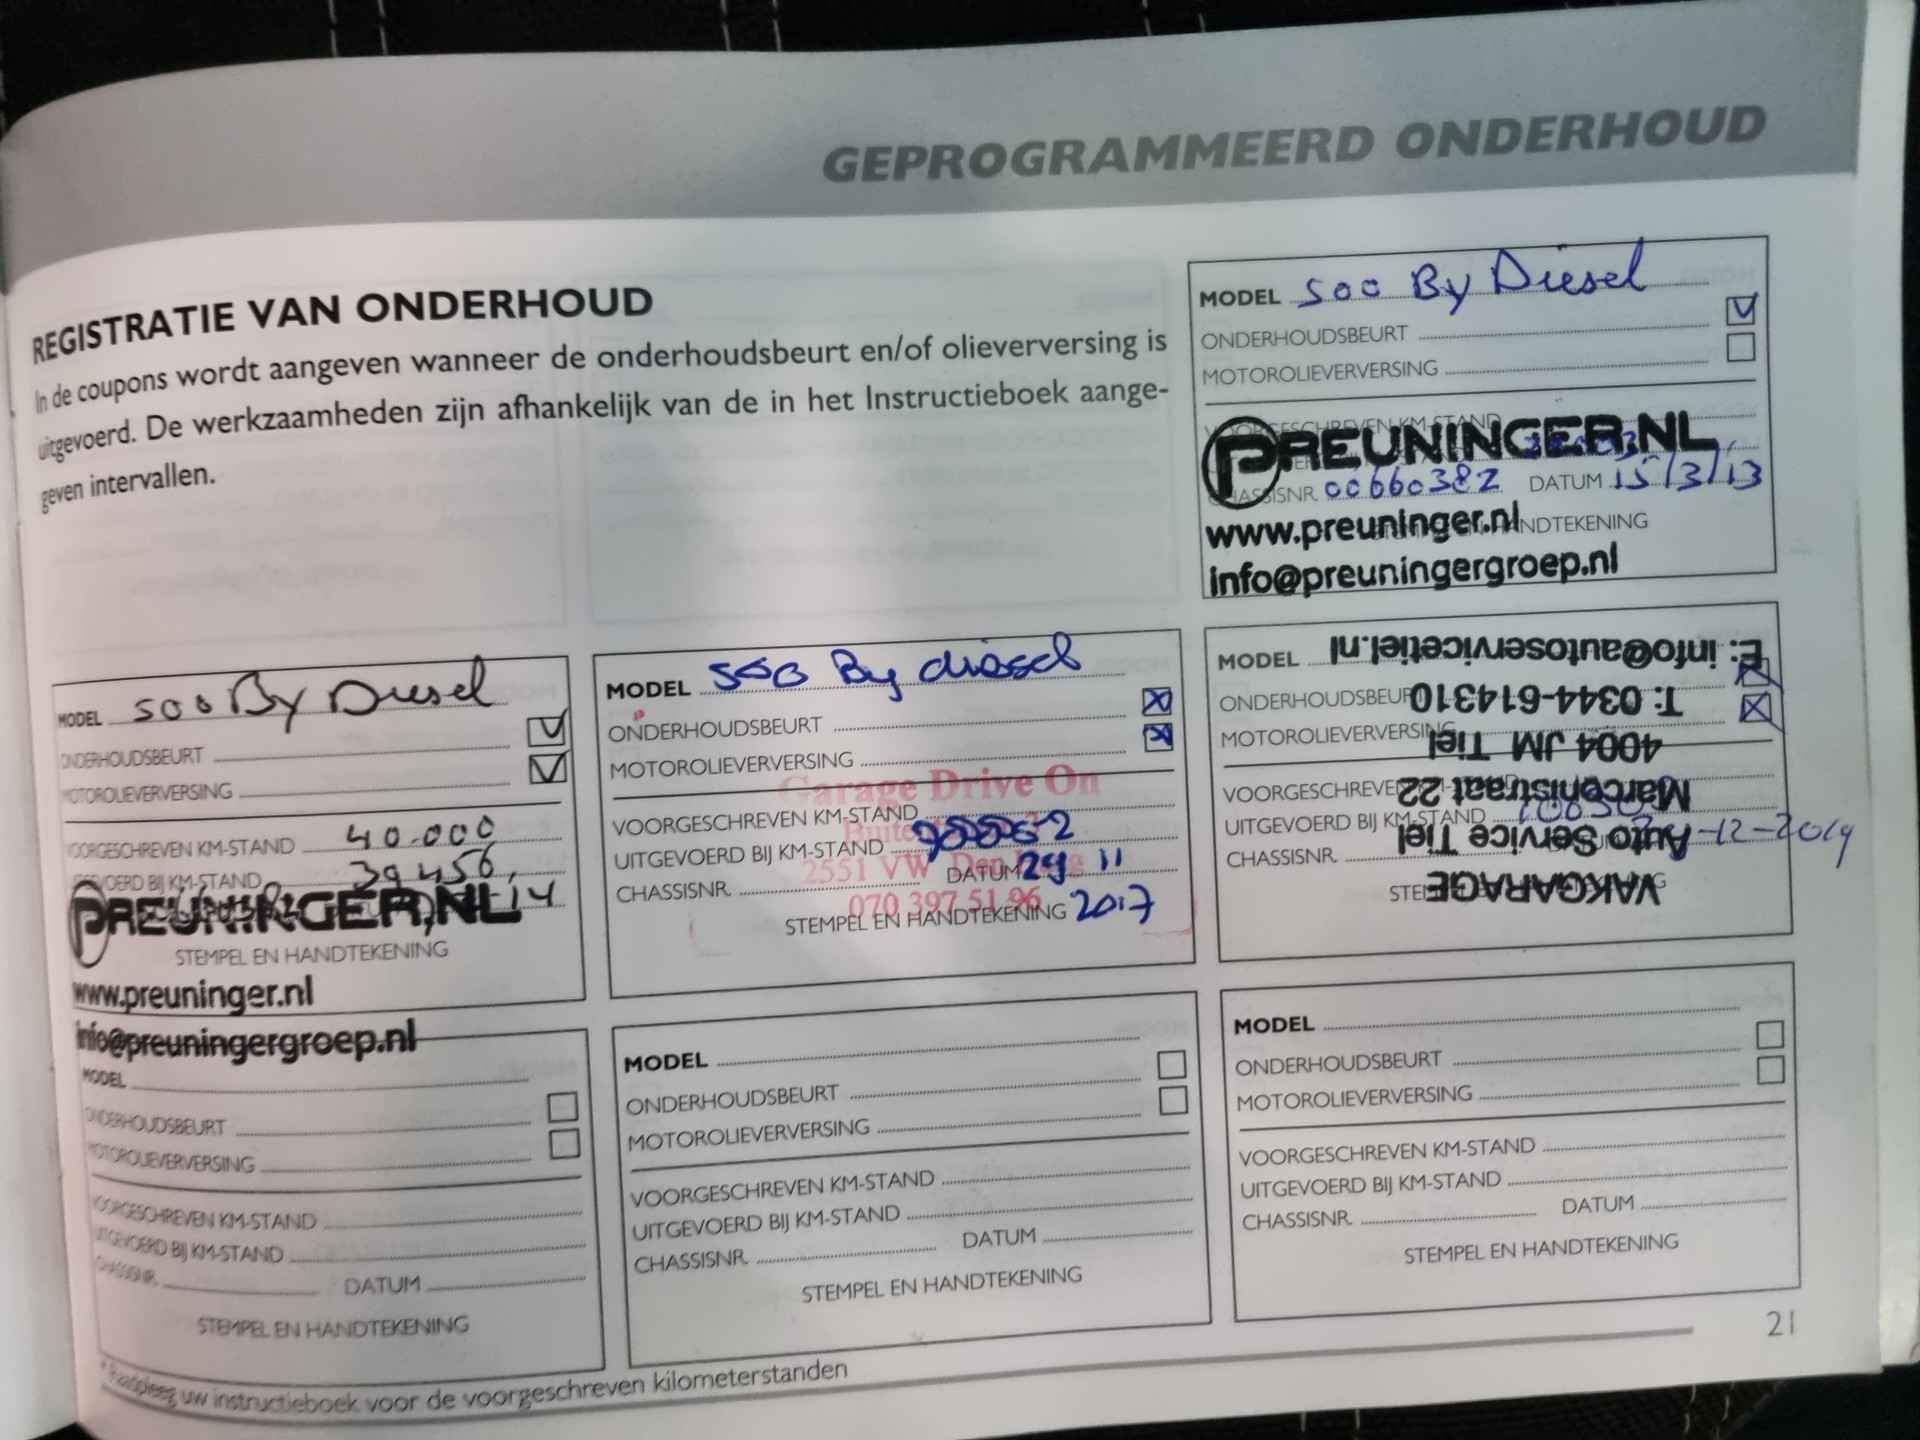 GEPROGRAMMEERD ONDERHOUD
REGISTRATIE VAN ONDERHOUD
In de coupons wordt aangeven wanneer de onderhoudsbeurt en/of olieverversing is
uitgevoerd. De werkzaamheden zijn afhankelijk van de in het Instructieboek aange-
geven intervallen.
MODEL 500 By Diesel
ONDERHOUDSBEURT
MOTOROLIEVERVERSING
VOORGESCHREVEN KM-STAND
PREUNINGER.NL
CHASSISNR 00660382 DATUM 15/3/13
www.preuninger.nl HANDTEKENING
info@preuningergroep.nl
MODEL 500 By Diesel
ONDERHOUDSBEURT
MOTOROLIEVERVERSING
VOORGESCHREVEN KM-STAND 40.000
UITGEVOERD BIJ KM-STAND 39456,
PREUNINGER.NL 14
STEMPEL EN HANDTEKENING
www.preuninger.nl
info@preuningergroep.nl
MODEL 500 By diesel
ONDERHOUDSBEURT
MOTOROLIEVERVERSING
Garage Drive On
VOORGESCHREVEN KM-STAND
UITGEVOERD BIJ KM-STAND
2551 VW Den Haag
CHASSISNR. DATUM 29 11
070 397 51 96
STEMPEL EN HANDTEKENING 2017
MODEL
ONDERHOUDSBEURT
MOTOROLIEVERVERSING
VOORGESCHREVEN KM-STAND
UITGEVOERD BIJ KM-STAND
CHASSISNR. -12-2019
VAKGARAGE
Auto Service Tiel
Marconistraat 22
4004 JM Tiel
T: 0344-614310
E: info@autoservicetiel.nl
MODEL
ONDERHOUDSBEURT
MOTOROLIEVERVERSING
VOORGESCHREVEN KM-STAND
UITGEVOERD BIJ KM-STAND
CHASSISNR. DATUM
STEMPEL EN HANDTEKENING
MODEL
ONDERHOUDSBEURT
MOTOROLIEVERVERSING
VOORGESCHREVEN KM-STAND
UITGEVOERD BIJ KM-STAND
CHASSISNR. DATUM
STEMPEL EN HANDTEKENING
MODEL
ONDERHOUDSBEURT
MOTOROLIEVERVERSING
VOORGESCHREVEN KM-STAND
UITGEVOERD BIJ KM-STAND
CHASSISNR. DATUM
STEMPEL EN HANDTEKENING
* Raadpleeg uw instructieboek voor de voorgeschreven kilometerstanden
21